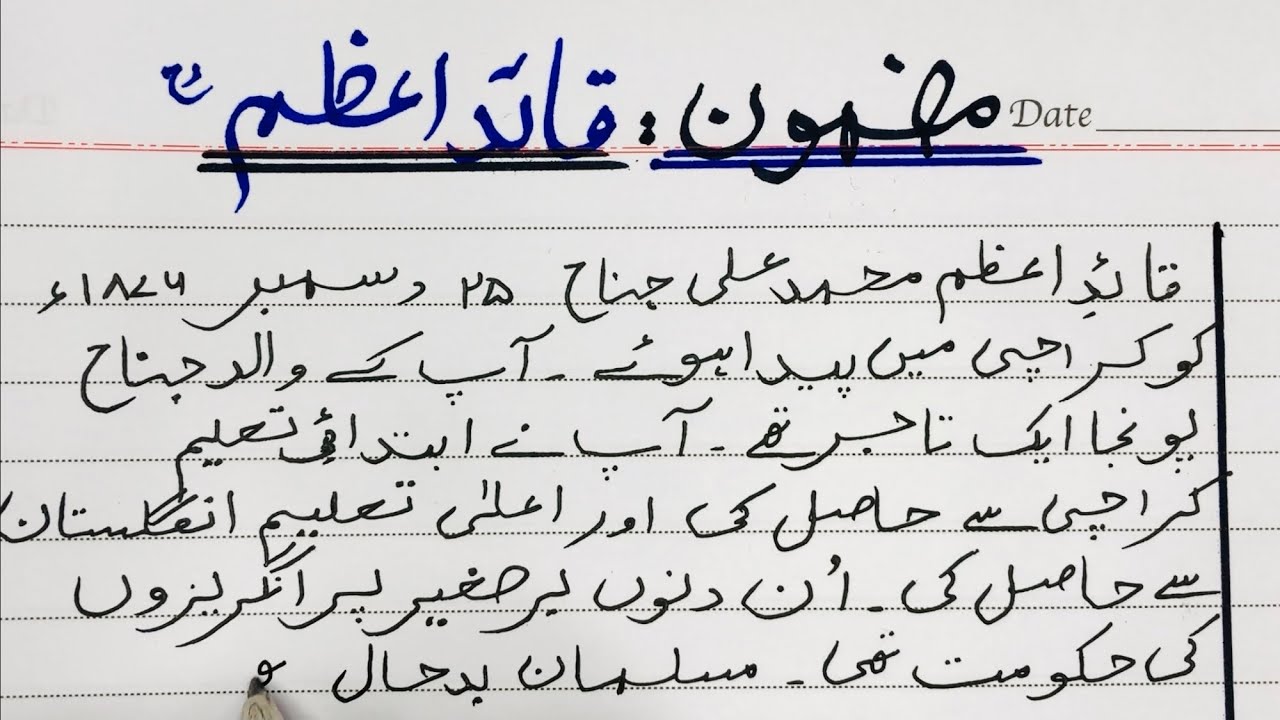 مضمون : قائد اعظمؒ
Date
قائدِ اعظم محمد علی جناح ۲۵ دسمبر ۱۸۷۶ء
کو کراچی میں پیدا ہوئے ۔ آپ کے والد جناح
پونجا ایک تاجر تھے ۔ آپ نے ابتدائی تعلیم
کراچی سے حاصل کی اور اعلٰی تعلیم انگلستان
سے حاصل کی ۔ اُن دنوں برصغیر پر انگریزوں
کی حکومت تھی ۔ مسلمان بدحال